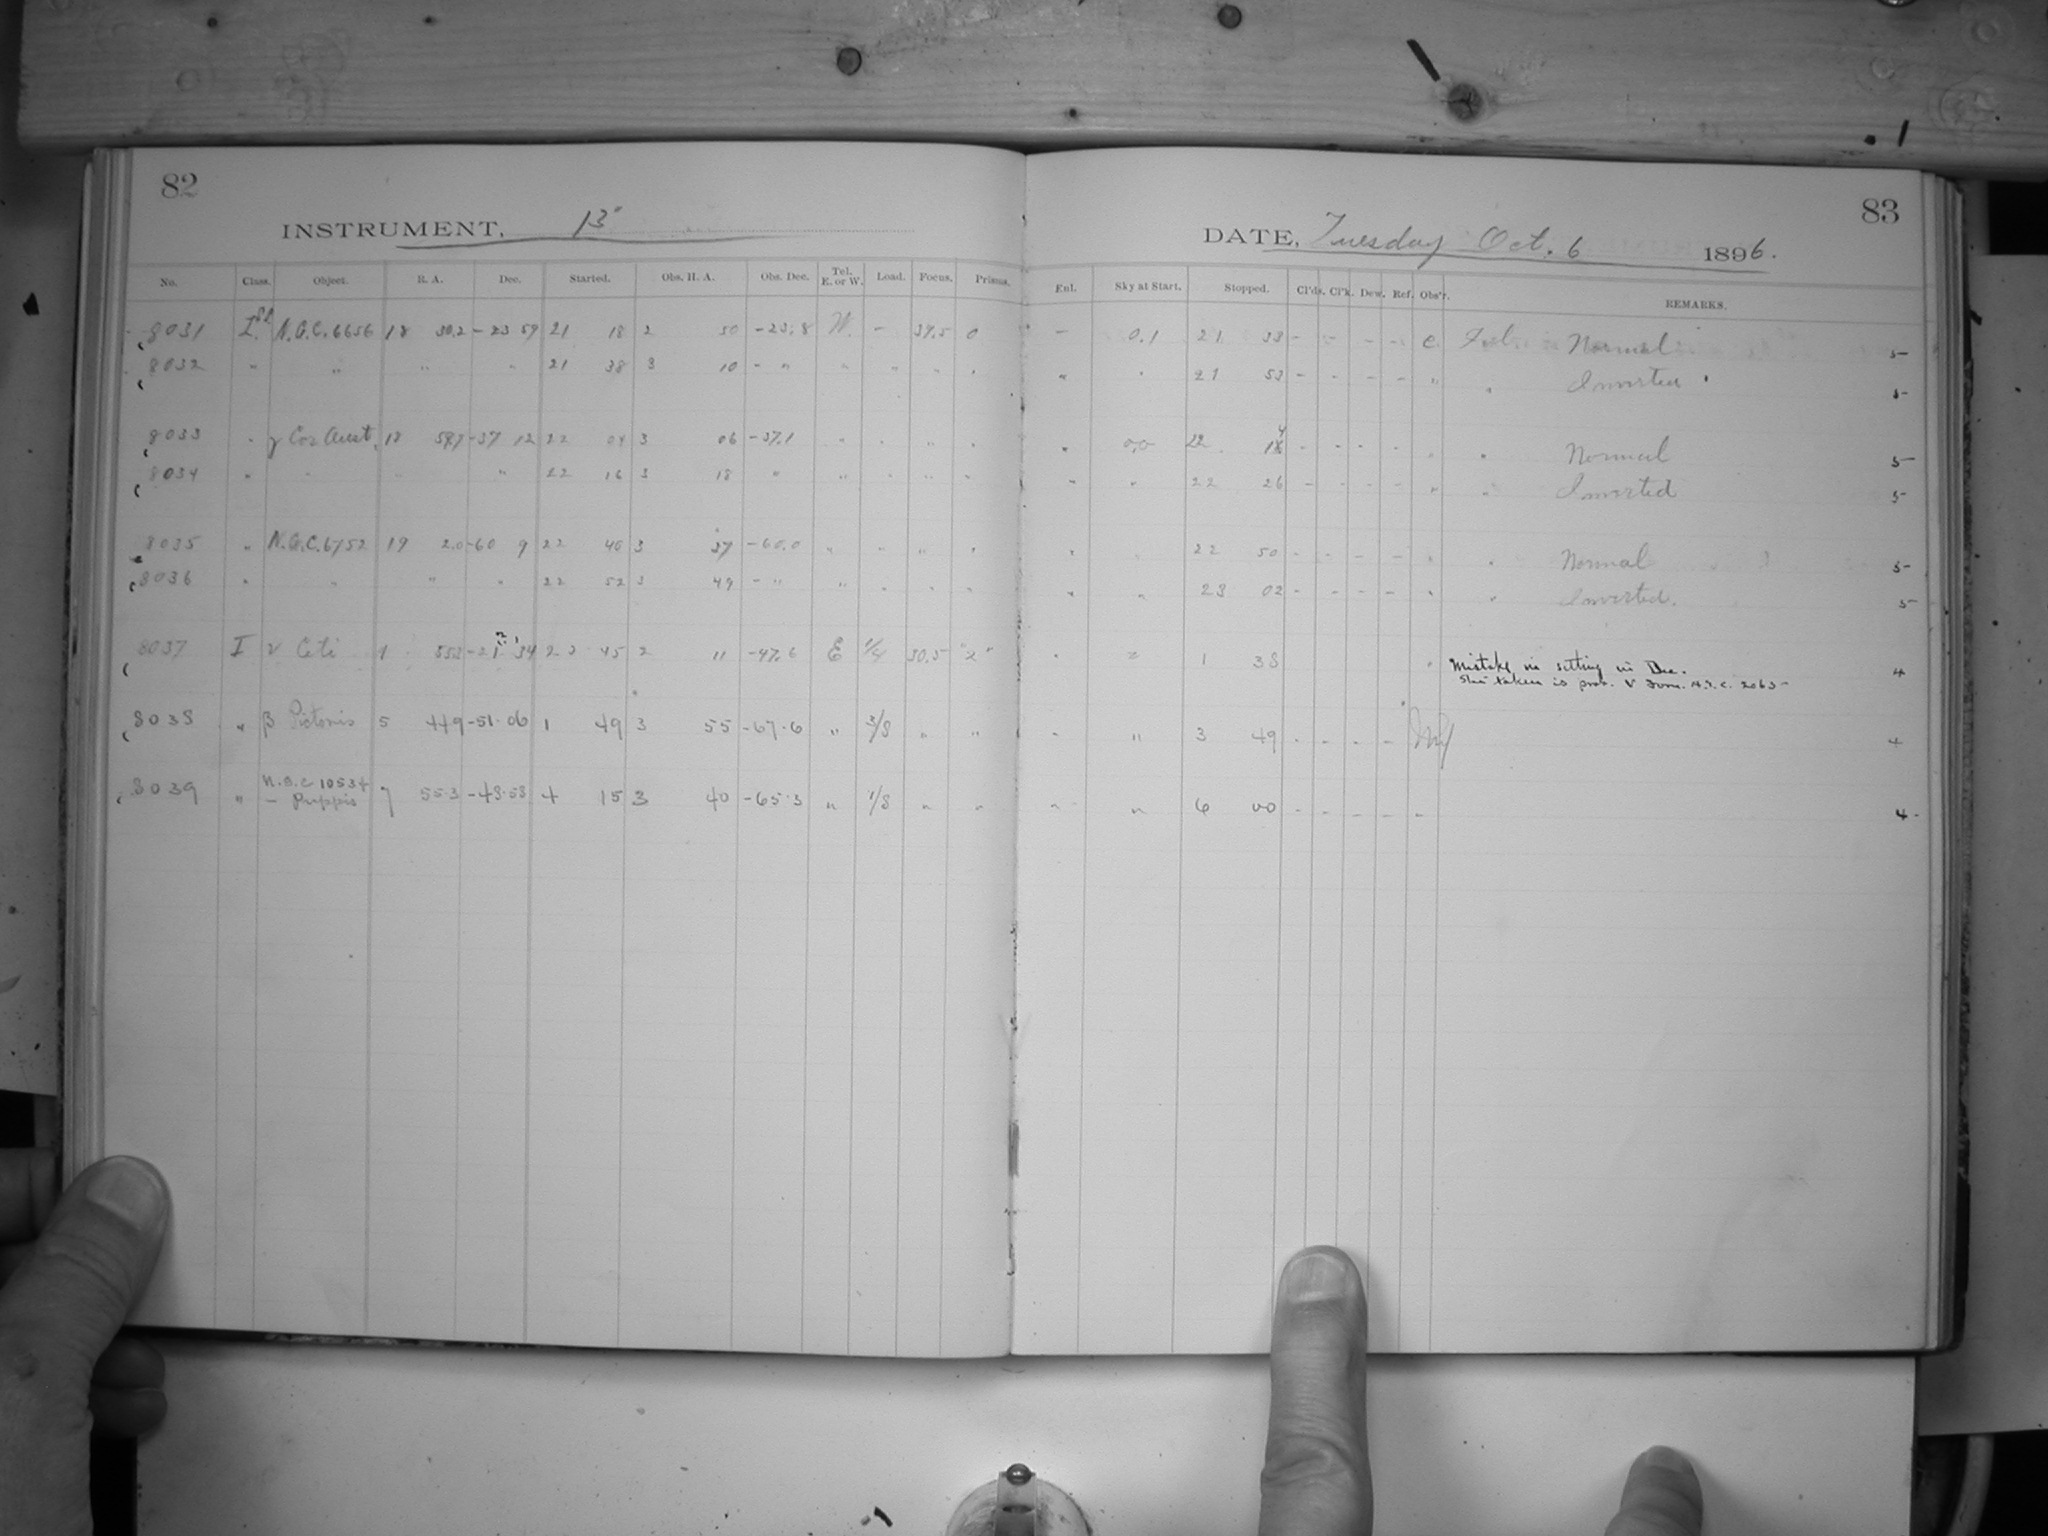 82
INSTRUMENT, 13"
No. Class. Object. R. A. Dec. Started. Obs. H. A. Obs. Dec. Tel. E. or W. Load. Focus. Prisms.
8031 I. N.G.C. 6656 18 30.2 - 23 59 21 18 2 50 -23.8 W. - 39.5 0
8032 " " " " 21 38 3 10 - " " " " "
8033 " γ Cor Aust. 18 59.7 -37 12 22 04 3 06 -37.1 " " " "
8034 " " " " 22 16 3 18 " " " " "
8035 " N.G.C. 6752 19 2.0 -60 9 22 40 3 37 -60.0 " " " "
8036 " " " " 22 52 3 49 - " " " " "
8037 I ν Ceti 1 55.3 -21 34 23 45 2 11 -47.6 E 1/4 30.5 "2"
8038 " β Pictoris 5 44.9 -51.06 1 49 3 55 -67.6 " 3/8 " "
8039 " N.G.C 10534 - Puppis 7 55.3 -48.58 4 15 3 40 -65.3 " 1/8 " "
83
DATE, Tuesday Oct. 6 1896.
Enl. Sky at Start. Stopped. Cl'ds. Cl'k. Dew. Ref. Obs'r. REMARKS.
- 0.1 21 33 - - - - C. Normal 5
" " 21 53 - - - - " " Inverted 5
" 0.0 22 14 - - - - " " Normal 5
" " 22 26 - - - - " " Inverted 5
" " 22 50 - - - - " " Normal 5
" " 23 02 - - - - " " Inverted. 5
" 1 38 " Mistake in setting in Dec. 4
Star taken is prob. ν
" " 3 49 - - - - 4
" " 6 00 - - - - " 4